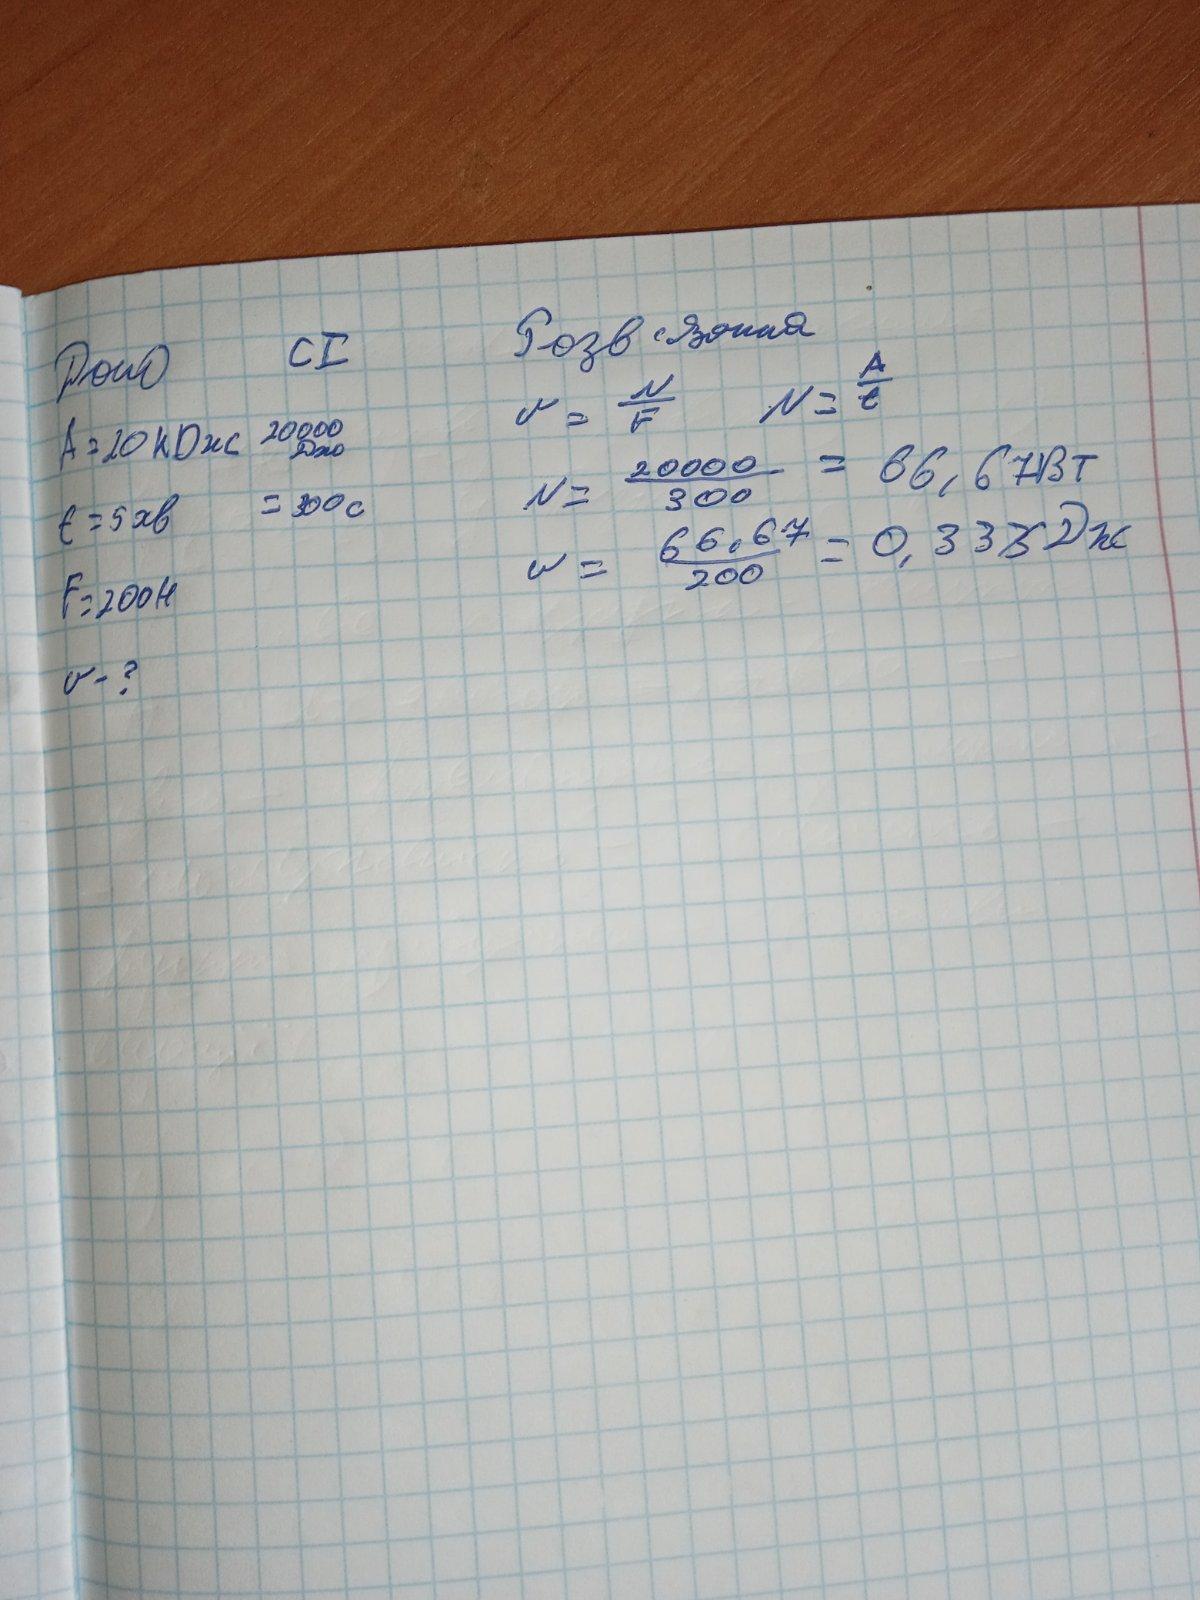 Дано СІ Розв'язання
A=20кДж 20000 Дж v = N/F N = A/t
t=5хв =300с N = 20000/300 = 66,67Вт
F=200Н v = 66,67/200 = 0,333Дж
v-?